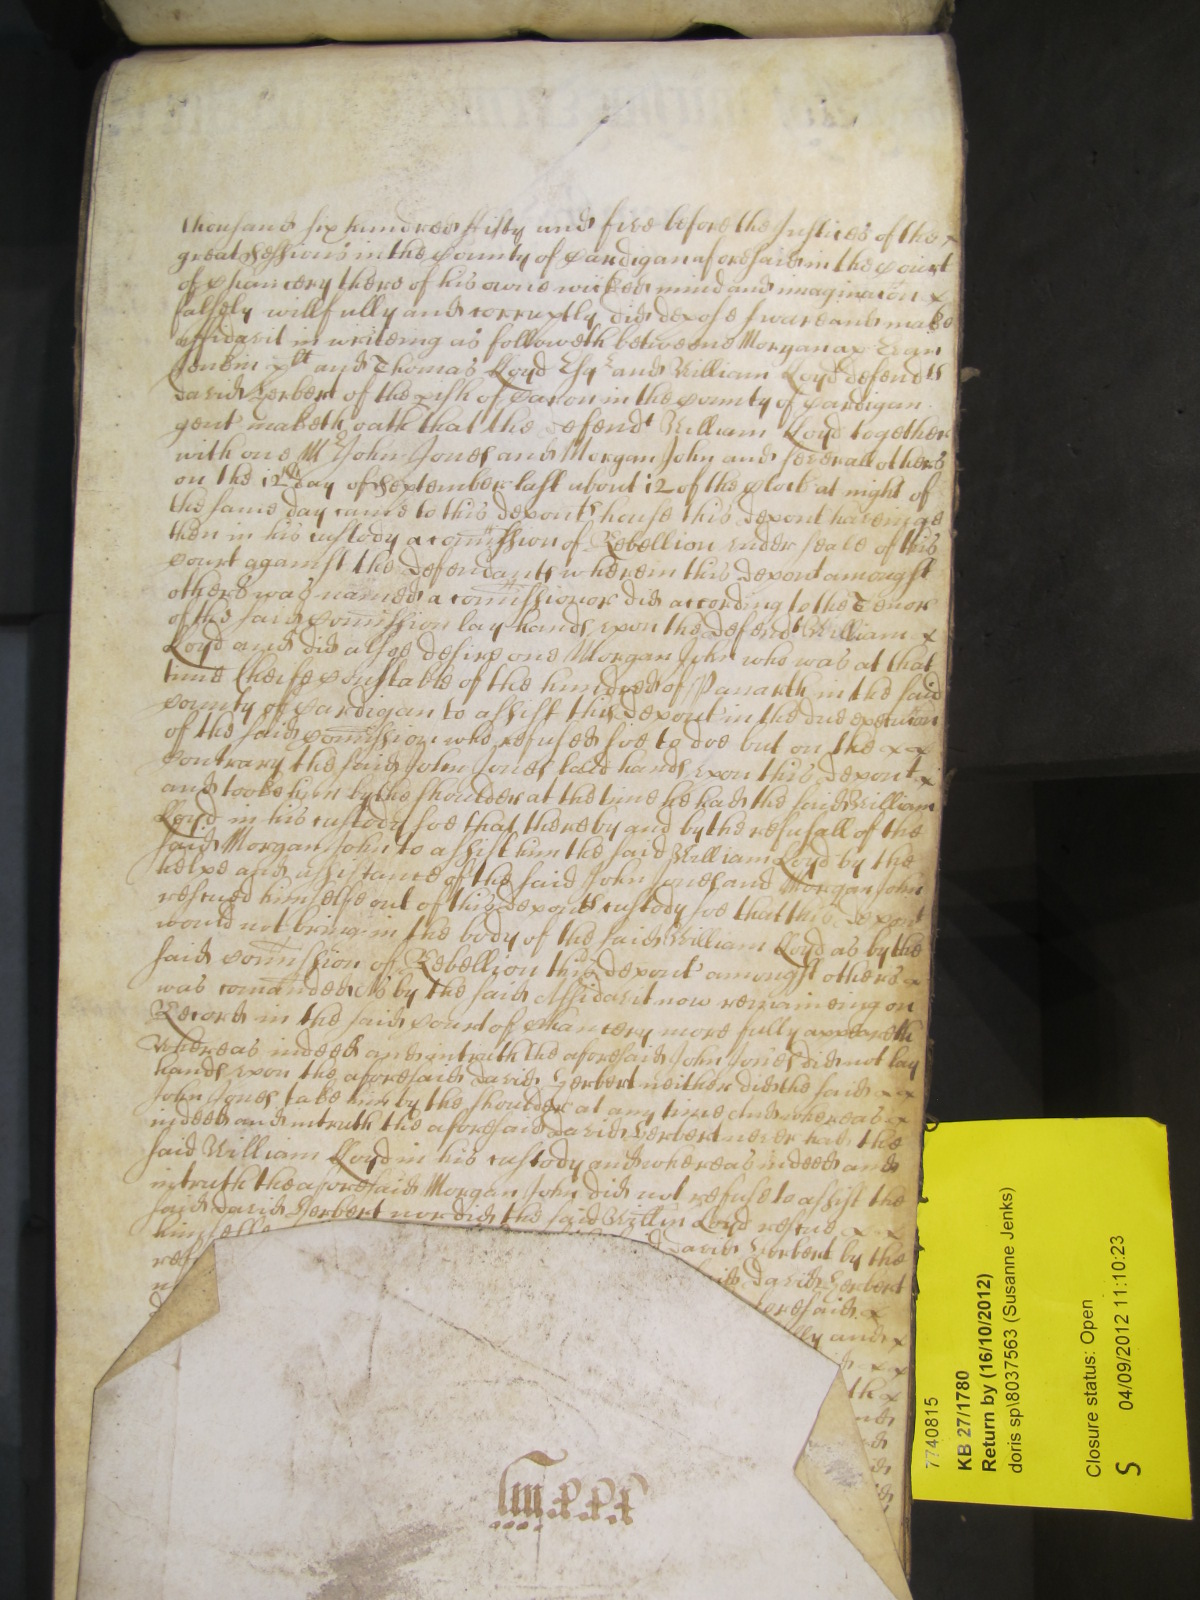 thousand six hundred fifty and five before the Justices of the x
great Sessions in the County of Cardigan aforesaid in the Court
of Chancery there of his owne wicked mind and imaginacon x
falsely willfully and corruptly did depose sweare and make
affidavit in writeing as followeth betweene Morgan ap Evan
Jenkin plt and Thomas Lloyd Esqr and William Lloyd defendts
David Herbert of the pish of Caron in the County of Cardigan
gent maketh oath that the defendt William Lloyd together
with one Mr John Jones and Morgan John and severall others
on the 12th day of September last about 12 of the Clock at night of
the same day came to this deponts house this depont haveinge
then in his custody a comission of Rebellion under seale of this
Court against the defendants wherein this depont amongst
others was named a comissionor did according to the Tenor
of the said Comission lay hands upon the defendt William x
Lloyd and did alsoe desire one Morgan John who was at that
time Cheife Constable of the hundred of Panarth in the said
County of Cardigan to assist this depont in the due execution
of the said Comission who refused soe to doe but on the x x
Contrary the said John Jones laid hands upon this depont x
and tooke him by the shoulder at the time he had the said William
Lloyd in his custody soe that thereby and by the refusall of the
said Morgan John to assist him the said William Lloyd by the
helpe and assistance of the said John Jones and Morgan John
rescued himselfe out of this deponts custody soe that this depont
would not bring in the body of the said William Lloyd as by the
said Comission of Rebellion this depont amongst others x
was comanded As by the said Affidavit now remaineing on
Record in the said Court of Chancery more fully appeareth
Whereas indeed and in truth the aforesaid John Jones did not lay
hands upon the aforesaid David Herbert neither did the said x x
John Jones take him by the shoulder at any time And whereas x
indeed and in truth the aforesaid David Herbert never had the
said William Lloyd in his custody and whereas indeed and
in truth the aforesaid Morgan John did not refuse to assist the
said David Herbert nor did the said Willm Lloyd rescue x x
himselfe David Herbert by the
said David Herbert
aforesaid x
and x
x x
x
lxxxiiii
7740815
KB 27/1780
Return by (16/10/2012)
doris sp\8037563 (Susanne Jenks)
Closure status: Open
S 04/09/2012 11:10:23